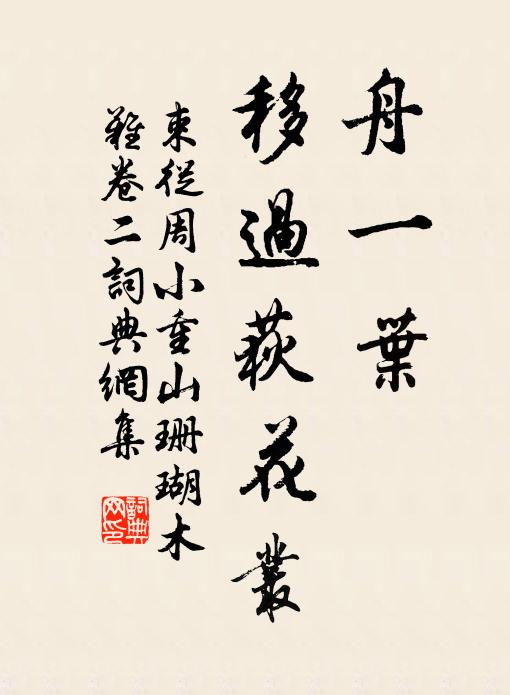 舟一葉
移過荻花叢
東從周小重山珊瑚木
難卷二詞典網集
詞典
网印